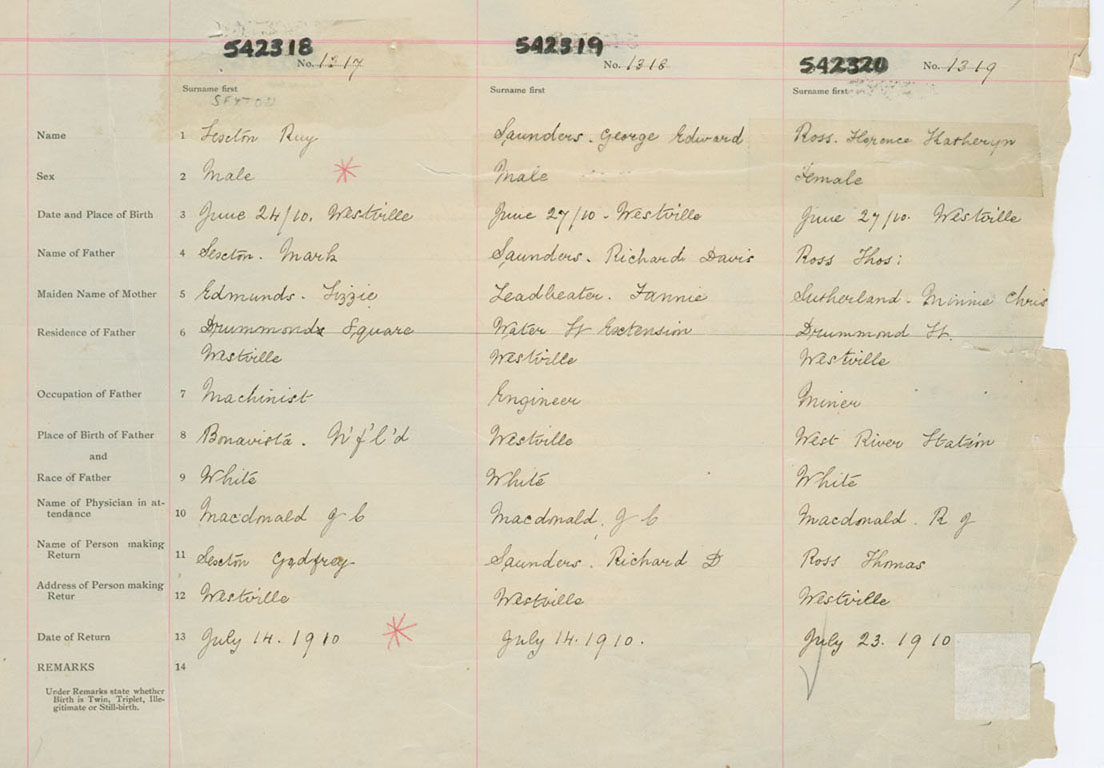 542318 542319 542320
No. 1317 No. 1318 No. 1319
Surname first Surname first Surname first
SEXTON
Name 1 Sexton Ruy Saunders. George Edward Ross. Florence Katheryn
Sex 2 Male Male Female
Date and Place of Birth 3 June 24/10. Westville June 27/10 - Westville June 27/10. Westville
Name of Father 4 Sexton. Mark Saunders. Richard Davis Ross Thos:
Maiden Name of Mother 5 Edmunds. Lizzie Leadbeater. Fannie Sutherland - Minnie Chris
Residence of Father 6 Drummond Square Water St Extension Drummond St.
Westville Westville Westville
Occupation of Father 7 Machinist Engineer Miner
Place of Birth of Father 8 Bonavista. N'f'l'd Westville West River Station
and
Race of Father 9 White White White
Name of Physician in at-
tendance 10 Macdonald J C Macdonald. J C Macdonald. R J
Name of Person making
Return 11 Sexton Godfrey Saunders. Richard D Ross Thomas
Address of Person making
Retur 12 Westville Westville Westville
Date of Return 13 July 14. 1910 July 14. 1910. July 23. 1910
REMARKS 14
Under Remarks state whether
Birth is Twin, Triplet, Ille-
gitimate or Still-birth.